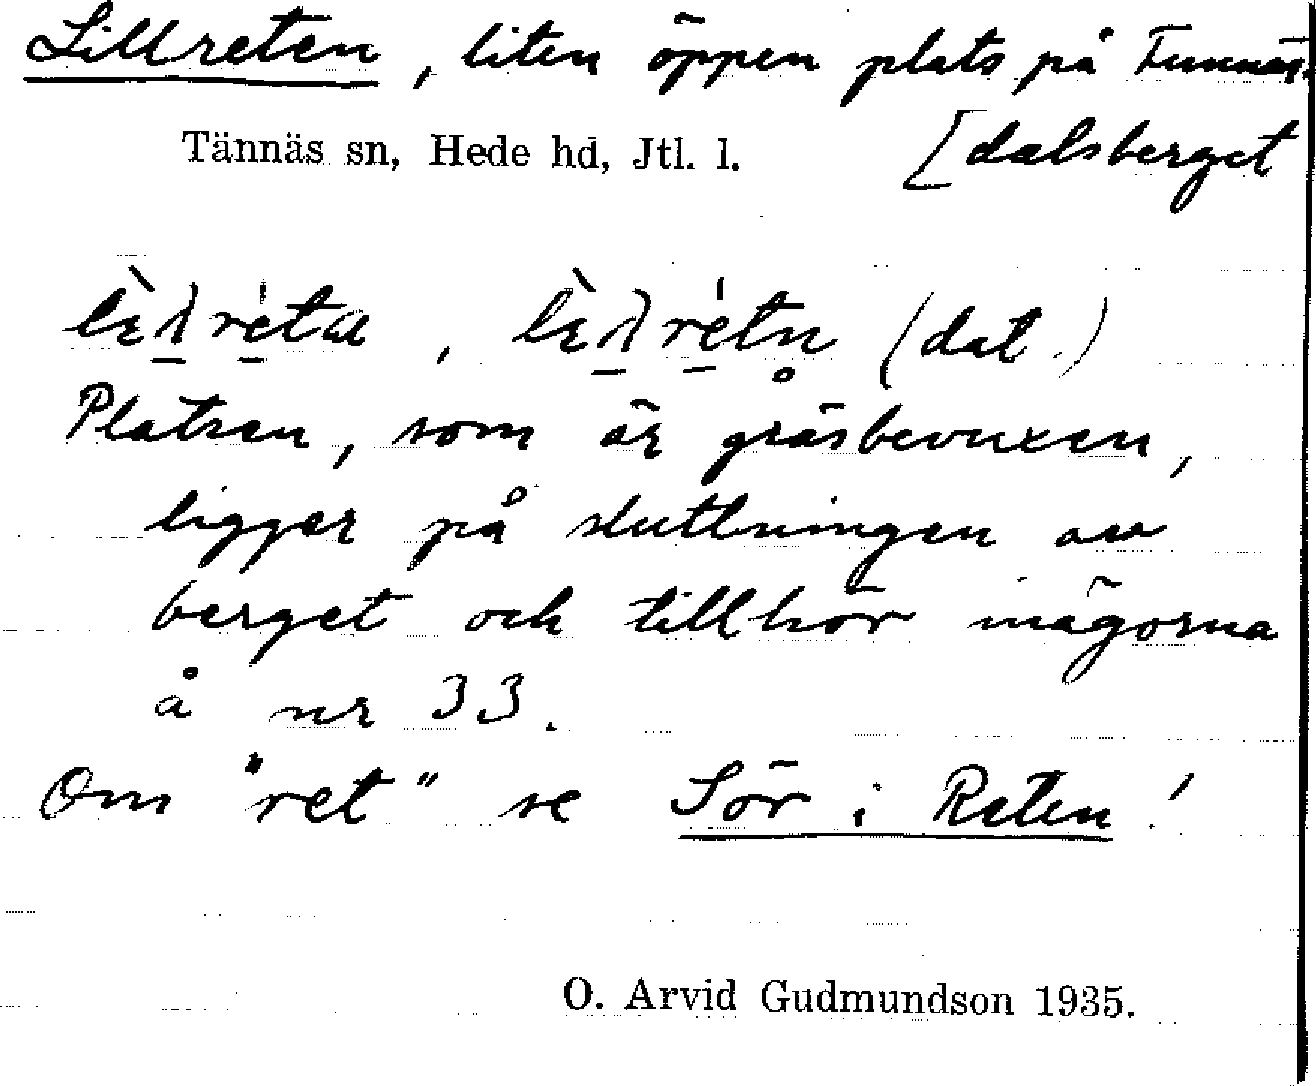 Lillreten, liten öppen plats på Funnäs-
[dalsberget
Tännäs sn, Hede hd, Jtl. l.
(dat.)
Platsen, som är gräsbevuxen,
ligger på sluttningen av
berget och tillhör inägorna
å nr 33.
Om "ret" se Sör i Reten!
O. Arvid Gudmundson 1935.